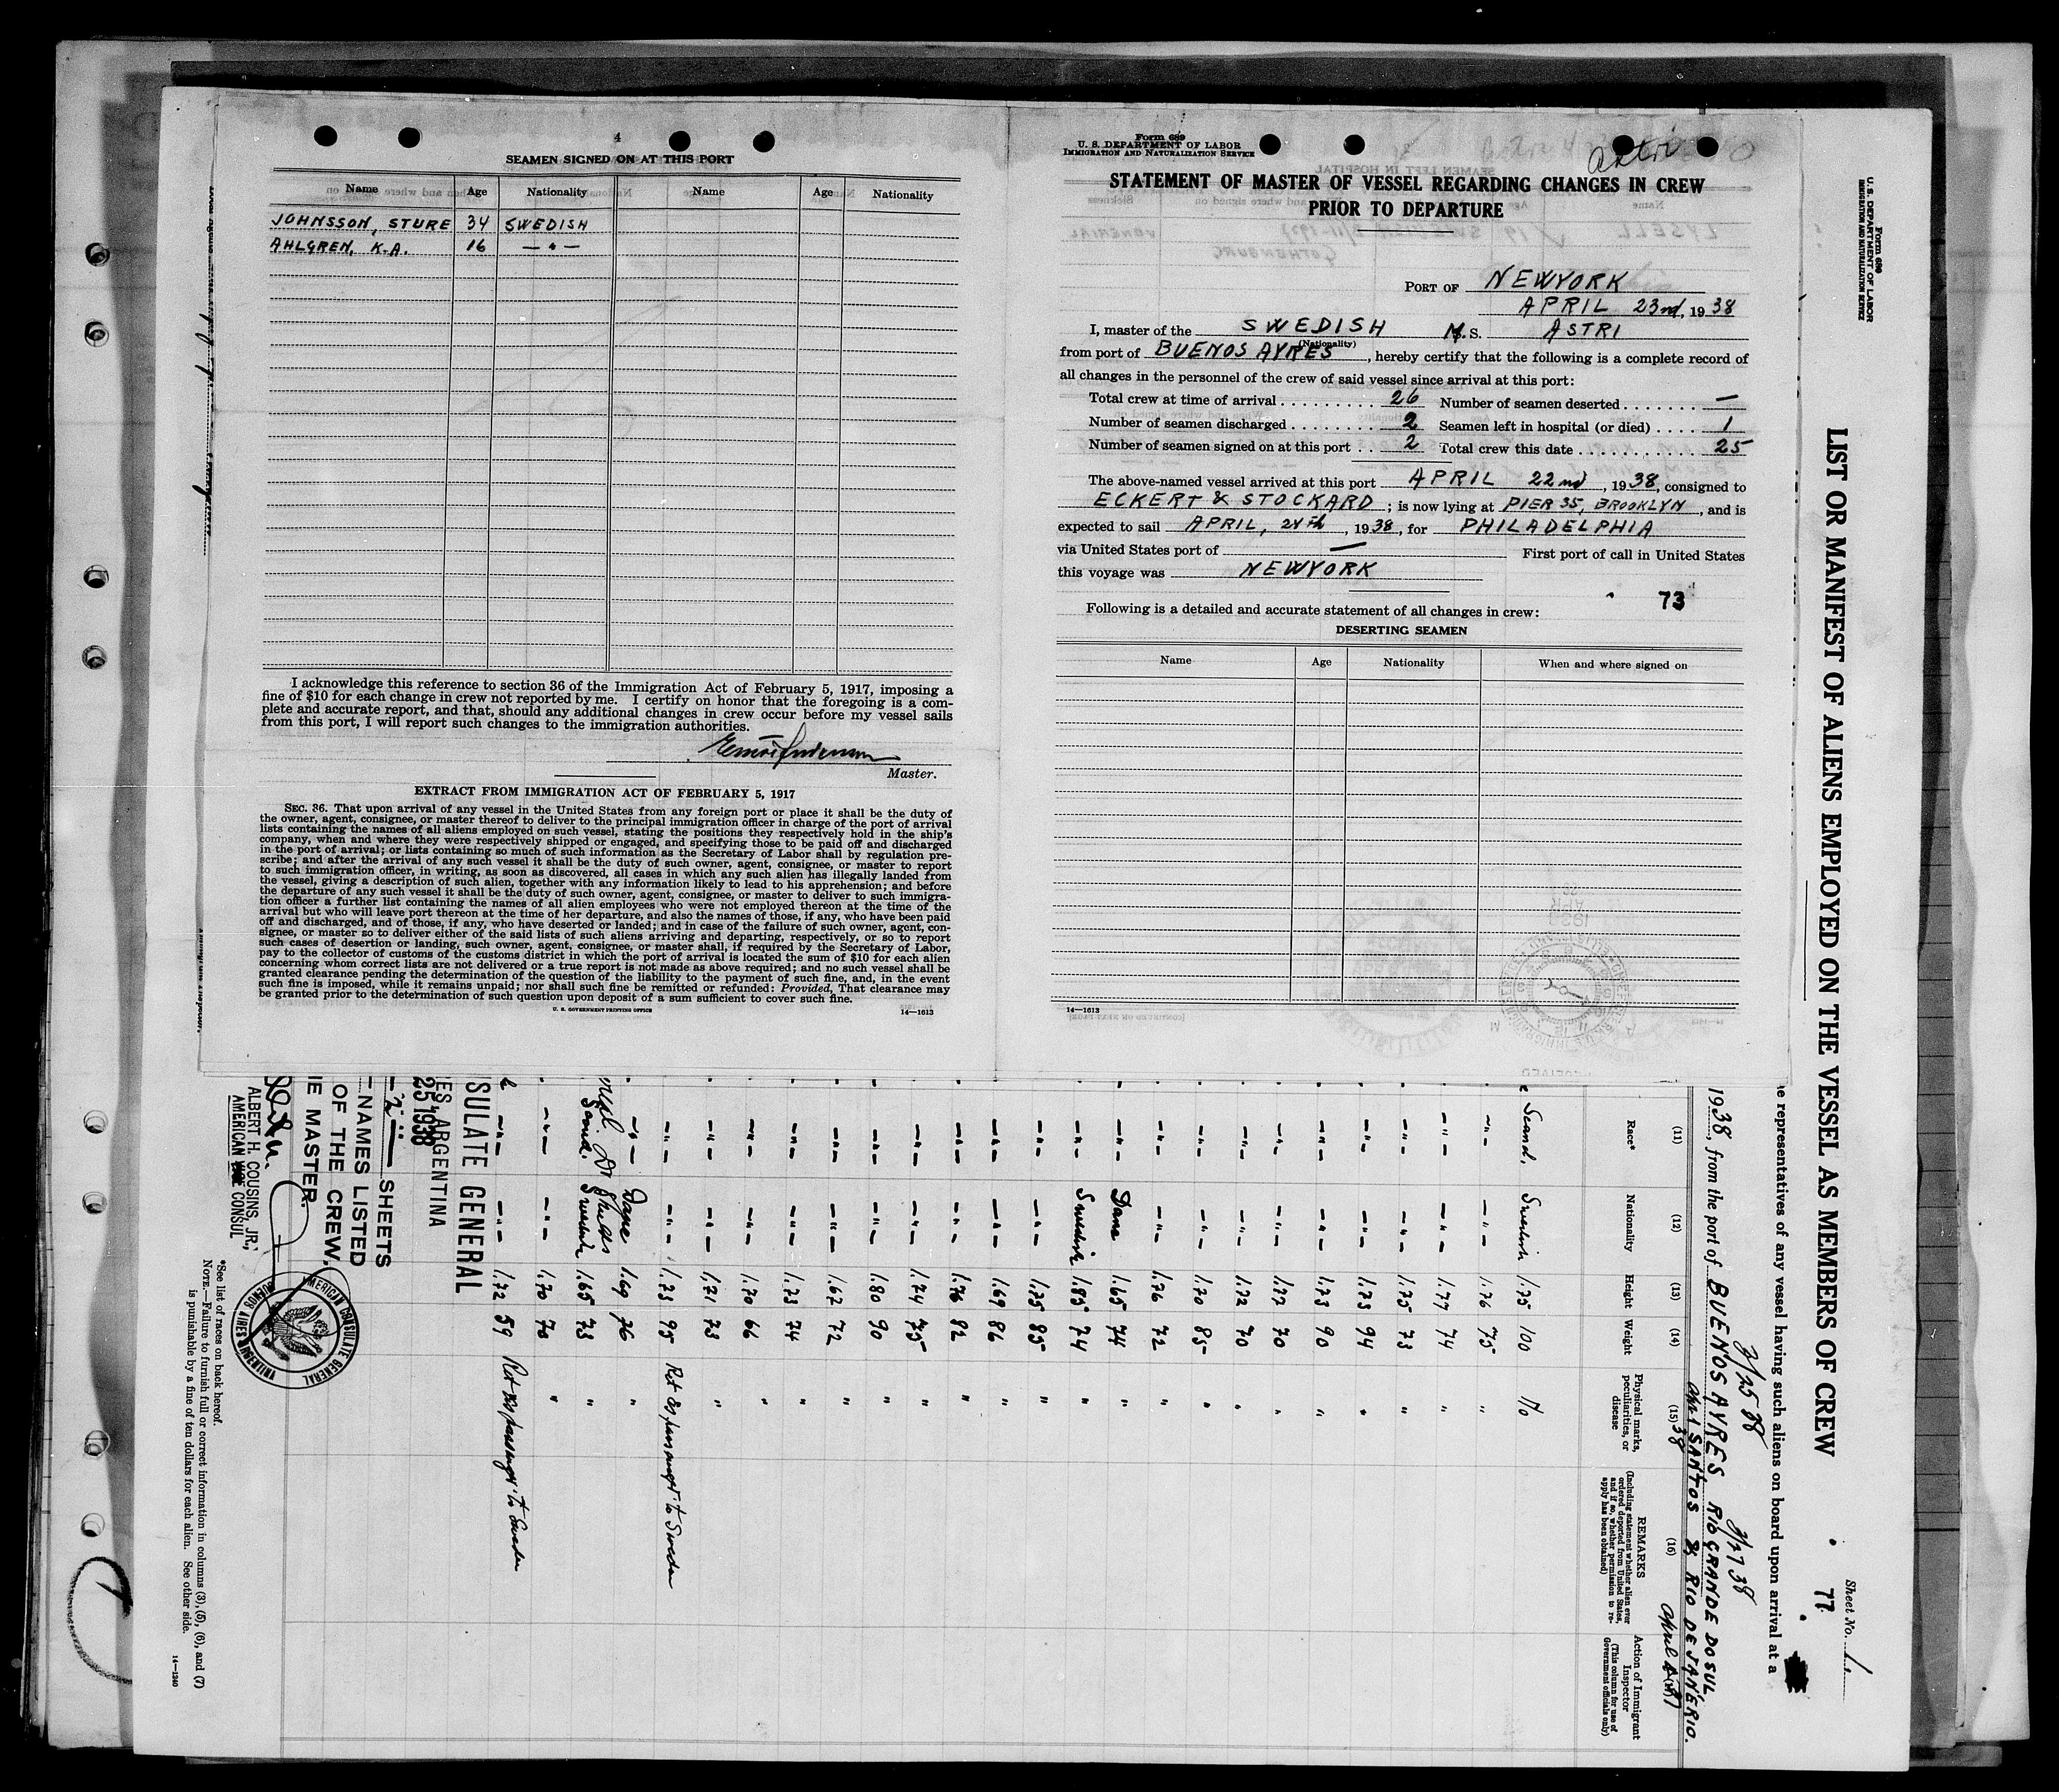 4
SEAMEN SIGNED ON AT THIS PORT
Name Age Nationality Name Age Nationality
JOHNSSON, STURE 34 SWEDISH
AHLGREN, K.A. 16 —"—
I acknowledge this reference to section 36 of the Immigration Act of February 5, 1917, imposing a
fine of $10 for each change in crew not reported by me. I certify on honor that the foregoing is a com-
plete and accurate report, and that, should any additional changes in crew occur before my vessel sails
from this port, I will report such changes to the immigration authorities.
Master.
EXTRACT FROM IMMIGRATION ACT OF FEBRUARY 5, 1917
SEC. 36. That upon arrival of any vessel in the United States from any foreign port or place it shall be the duty of
the owner, agent, consignee, or master thereof to deliver to the principal immigration officer in charge of the port of arrival
lists containing the names of all aliens employed on such vessel, stating the positions they respectively hold in the ship's
company, when and where they were respectively shipped or engaged, and specifying those to be paid off and discharged
in the port of arrival; or lists containing so much of such information as the Secretary of Labor shall by regulation pre-
scribe; and after the arrival of any such vessel it shall be the duty of such owner, agent, consignee, or master to report
to such immigration officer, in writing, as soon as discovered, all cases in which any such alien has illegally landed from
the vessel, giving a description of such alien, together with any information likely to lead to his apprehension; and before
the departure of any such vessel it shall be the duty of such owner, agent, consignee, or master to deliver to such immigra-
tion officer a further list containing the names of all alien employees who were not employed thereon at the time of the
arrival but who will leave port thereon at the time of her departure, and also the names of those, if any, who have been paid
off and discharged, and of those, if any, who have deserted or landed; and in case of the failure of such owner, agent, con-
signee, or master so to deliver either of the said lists of such aliens arriving and departing, respectively, or so to report
such cases of desertion or landing, such owner, agent, consignee, or master shall, if required by the Secretary of Labor,
pay to the collector of customs of the customs district in which the port of arrival is located the sum of $10 for each alien
concerning whom correct lists are not delivered or a true report is not made as above required; and no such vessel shall be
granted clearance pending the determination of the question of the liability to the payment of such fine, and, in the event
such fine is imposed, while it remains unpaid; nor shall such fine be remitted or refunded: Provided, That clearance may
be granted prior to the determination of such question upon deposit of a sum sufficient to cover such fine.
U. S. GOVERNMENT PRINTING OFFICE 14—1613
Form 689
U. S. DEPARTMENT OF LABOR
IMMIGRATION AND NATURALIZATION SERVICE
Astri
STATEMENT OF MASTER OF VESSEL REGARDING CHANGES IN CREW
PRIOR TO DEPARTURE
PORT OF NEWYORK
APRIL 23rd, 1938
I, master of the SWEDISH M.S. ASTRI
(Nationality)
from port of BUENOS AYRES, hereby certify that the following is a complete record of
all changes in the personnel of the crew of said vessel since arrival at this port:
Total crew at time of arrival 26 Number of seamen deserted —
Number of seamen discharged 2 Seamen left in hospital (or died) 1
Number of seamen signed on at this port 2 Total crew this date 25
The above-named vessel arrived at this port APRIL 22nd, 1938, consigned to
ECKERT & STOCKARD; is now lying at PIER 35, BROOKLYN, and is
expected to sail APRIL, 24th, 1938, for PHILADELPHIA
via United States port of — First port of call in United States
this voyage was NEWYORK
73
Following is a detailed and accurate statement of all changes in crew:
DESERTING SEAMEN
Name Age Nationality When and where signed on
14—1613
Form 689
U. S. DEPARTMENT OF LABOR
IMMIGRATION AND NATURALIZATION SERVICE
LIST OR MANIFEST OF ALIENS EMPLOYED ON THE VESSEL AS MEMBERS OF CREW
Sheet No. 1.
77
e representatives of any vessel having such aliens on board upon arrival at a
3/25 38 3/27 38
1938, from the port of BUENOS AYRES, RIO GRANDE DO SUL
SANTOS & RIO DE JANERIO.
(11) (12) (13) (14) (15) (16)
Race* Nationality Height Weight Physical marks, peculiarities, or disease
REMARKS
(Including statement whether alien ever ordered deported from United States, and if so, whether permission to re-apply has been obtained)
Action of Immigrant Inspector
(This column for use of Government officials only)
Scand. Swedish 1.75 100 No
—"— —"— 1.76 75 "
—"— —"— 1.77 74 "
—"— —"— 1.75 73 "
—"— —"— 1.73 94 "
—"— —"— 1.73 90 "
—"— —"— 1.77 70 "
—"— —"— 1.72 70 "
—"— —"— 1.70 85 "
—"— —"— 1.76 72 "
—"— Dane 1.65 74 "
—"— Swedish 1.85 74 "
—"— —"— 1.75 85 "
—"— —"— 1.69 86 "
—"— —"— 1.76 82 "
—"— —"— 1.74 75 "
—"— —"— 1.80 90 "
—"— —"— 1.67 72 "
—"— —"— 1.73 74 "
—"— —"— 1.70 66 "
—"— —"— 1.71 73 "
—"— —"— 1.73 95 Ret as passenger to Sweden
—"— Dane 1.69 76 "
Scand. Swedish 1.65 73 "
—"— —"— 1.70 70 "
—"— —"— 1.72 59 Ret as passenger to Sweden
SULATE GENERAL
ES, ARGENTINA
25 1938
SHEETS
NAMES LISTED
OF THE CREW.
HE MASTER.
ALBERT H. COUSINS, JR.,
AMERICAN VICE CONSUL
AMERICAN CONSULATE GENERAL
BUENOS AIRES ARGENTINA
*See list of races on back hereof.
NOTE.—Failure to furnish full or correct information in columns (3), (5), (6), and (7)
is punishable by a fine of ten dollars for each alien. See other side.
14—1240